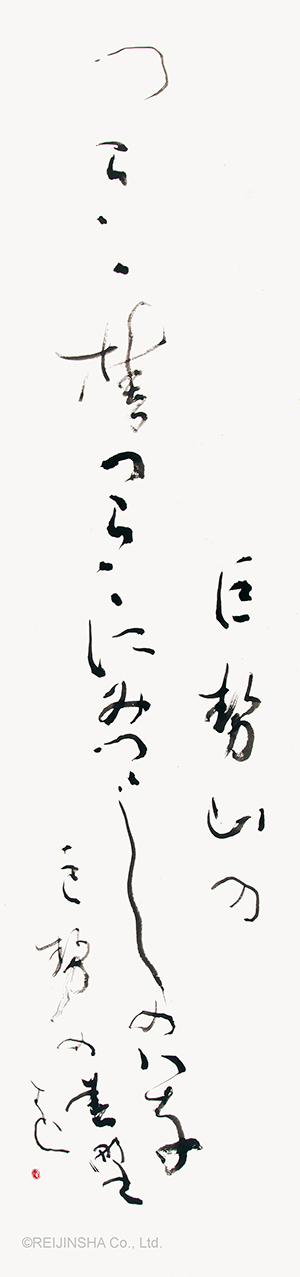 巨勢山の
つらゝゝ椿つらゝゝにみつゝしのハな
巨勢の春野
を
©REIJINSHA Co., Ltd.